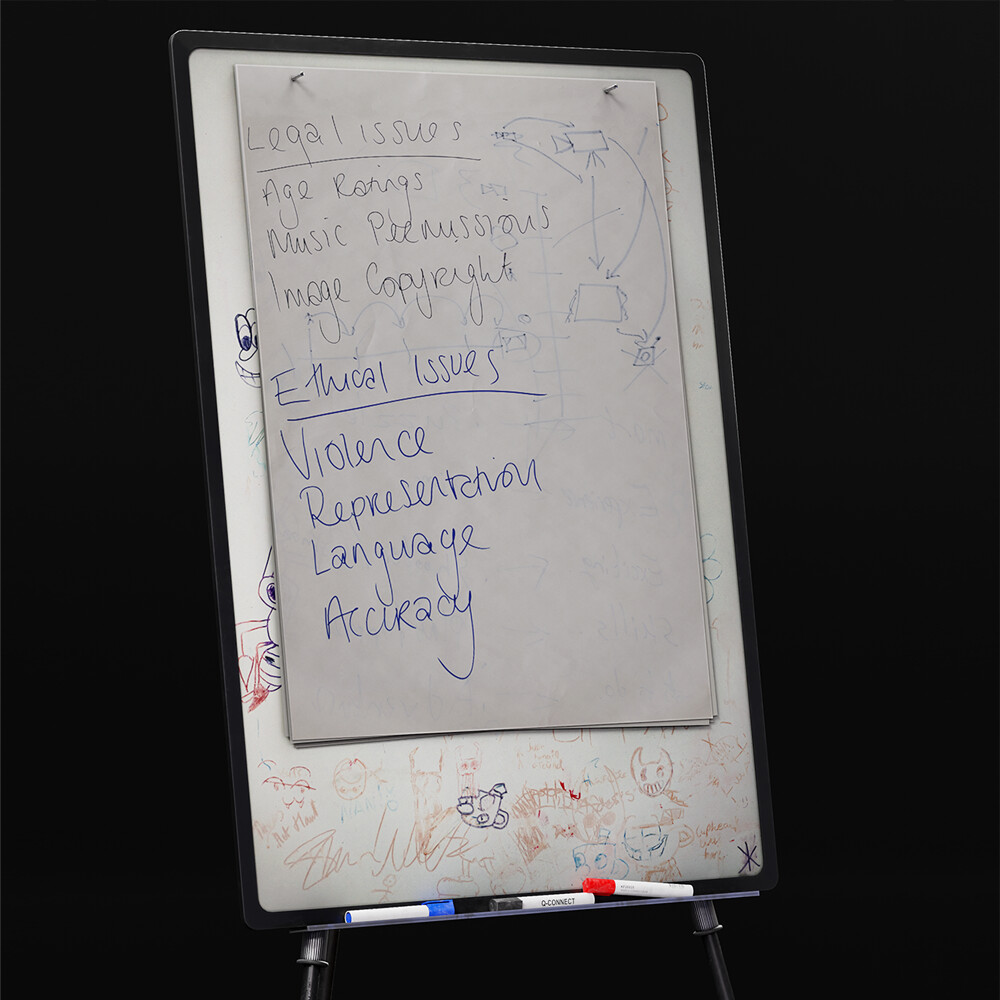 Legal issues
Age Ratings
Music Permissions
Image Copyright
Ethical Issues
Violence
Representation
Language
Accuracy
Q-CONNECT